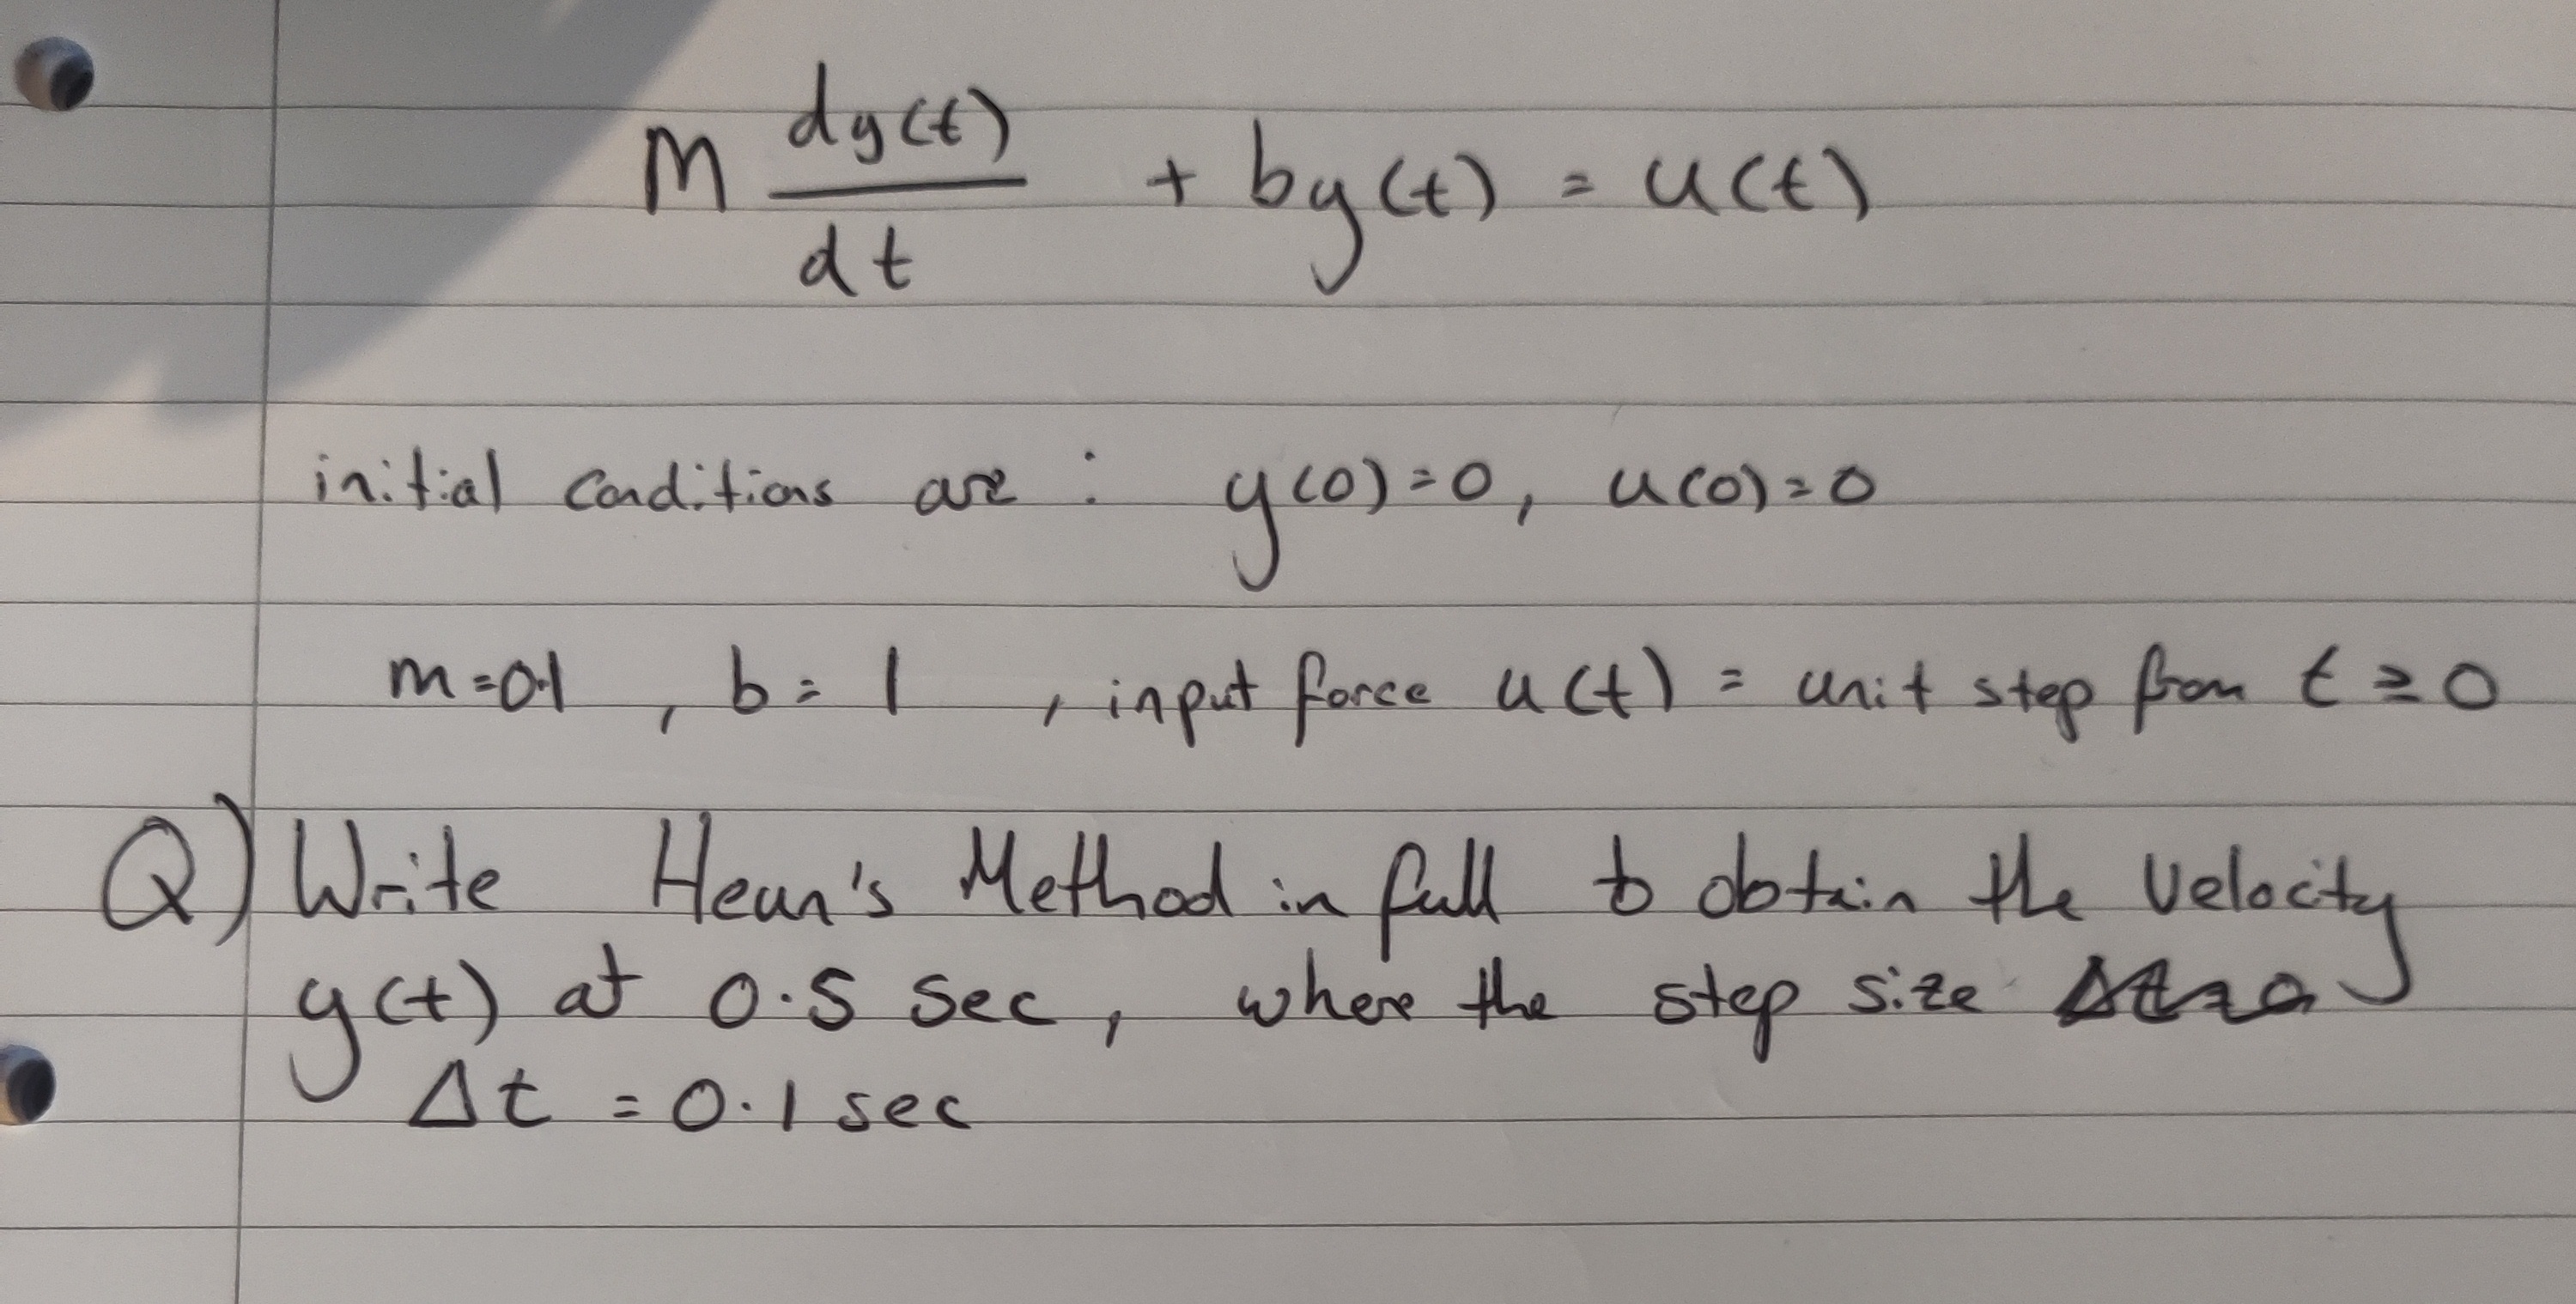 m dy(t)/dt + by(t) = u(t)
initial conditions are : y(0)=0, u(0)=0
m=0.1 , b=1 , input force u(t) = unit step from t ≥ 0
Q) Write Heun's Method in full to obtain the velocity
y(t) at 0.5 sec, where the step size
Δt = 0.1 sec